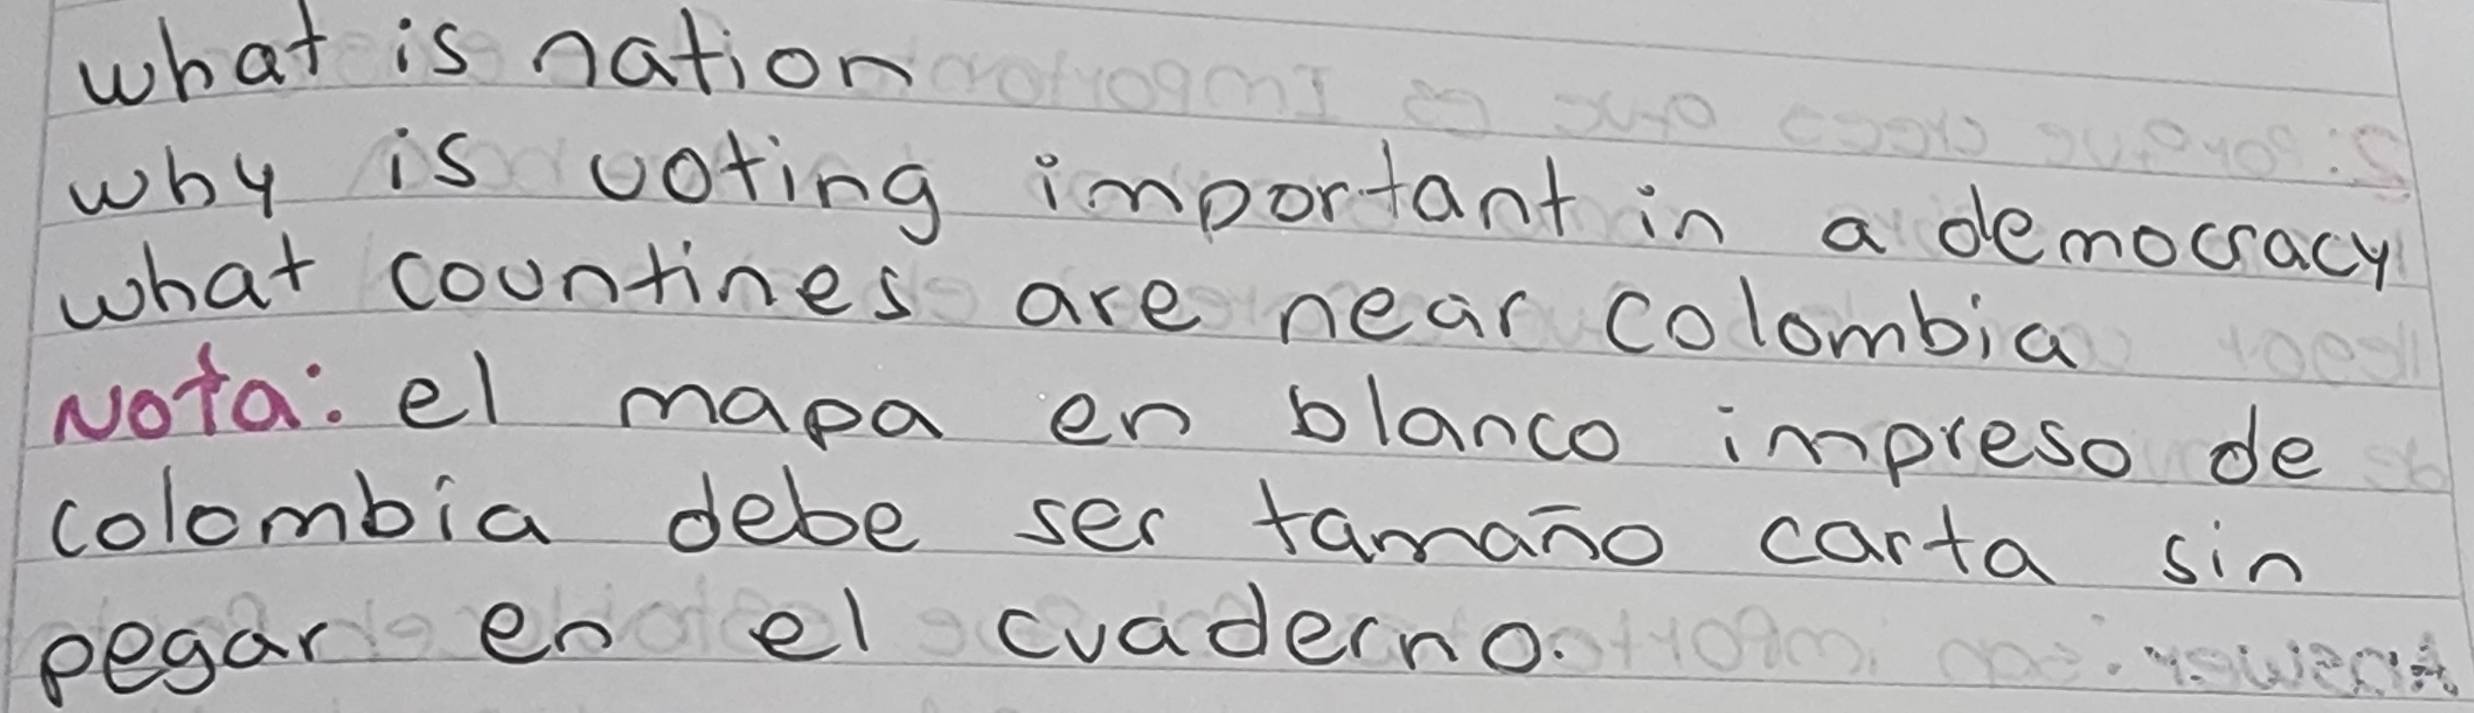 what is nation
why is voting important in a democracy
what countines are near colombia
Nota: el mapa en blanco impreso de
colombia debe ser tamaño carta sin
pegar en el cuaderno.